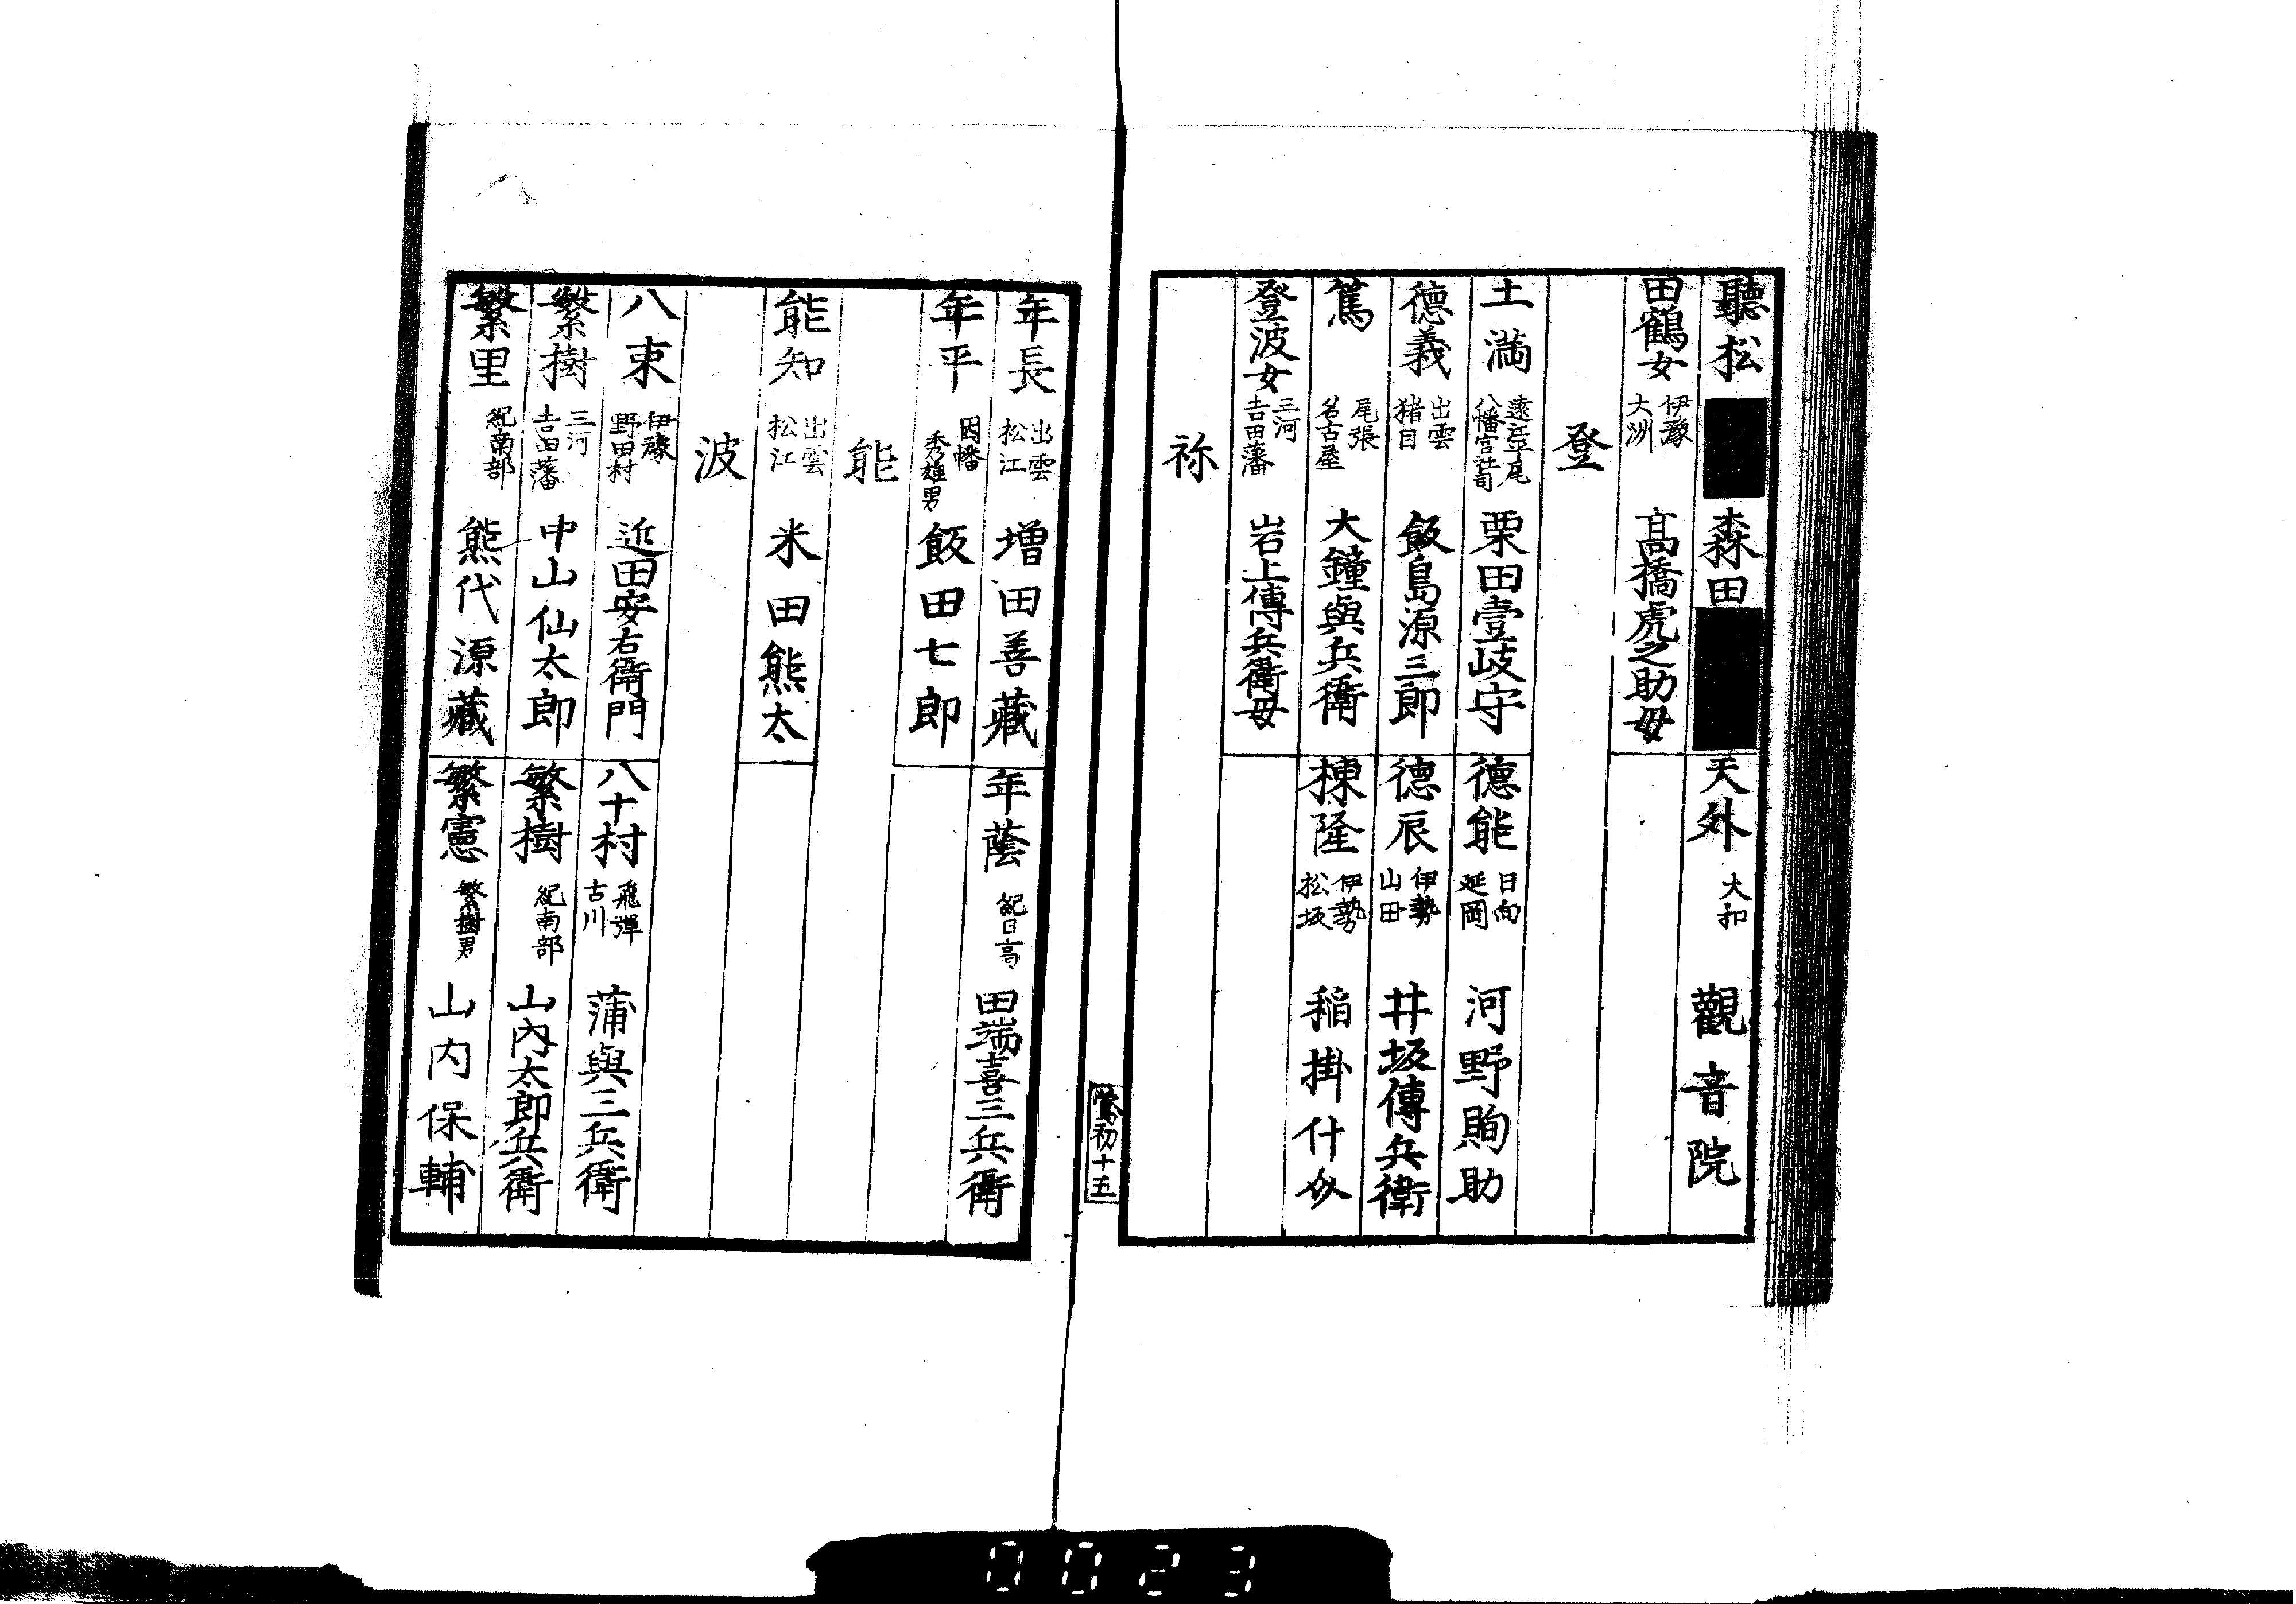 聽松 森田
天外 大和 觀音院
田鶴女 伊豫大洲 髙橋虎之助母
登
土満 遠江平尾八幡宮神司 栗田壹岐守
德能 日向延岡 河野駒助
德義 出雲猪目 飯島源三郎
德辰 伊勢山田 井坂傳兵衛
篤 尾張名古屋 大鐘與兵衛
棟隆 伊勢松坂 稲掛什介
登波女 三河吉田藩 岩上傳兵衛母
祢
鴬初十五
年長 出雲松江 増田善藏
年蔭 紀日高 田端喜三兵衛
年平 因幡秀雄男 飯田七郎
能
能知 出雲松江 米田熊太
波
八束 伊豫野田村 近田安右衛門
八十村 飛驒古川 蒲與三兵衛
繁樹 三河吉田藩 中山仙太郎
繁樹 紀南部 山内太郎兵衛
繁里 紀南部 熊代源藏
繁憲 繁樹男 山内保輔
0023